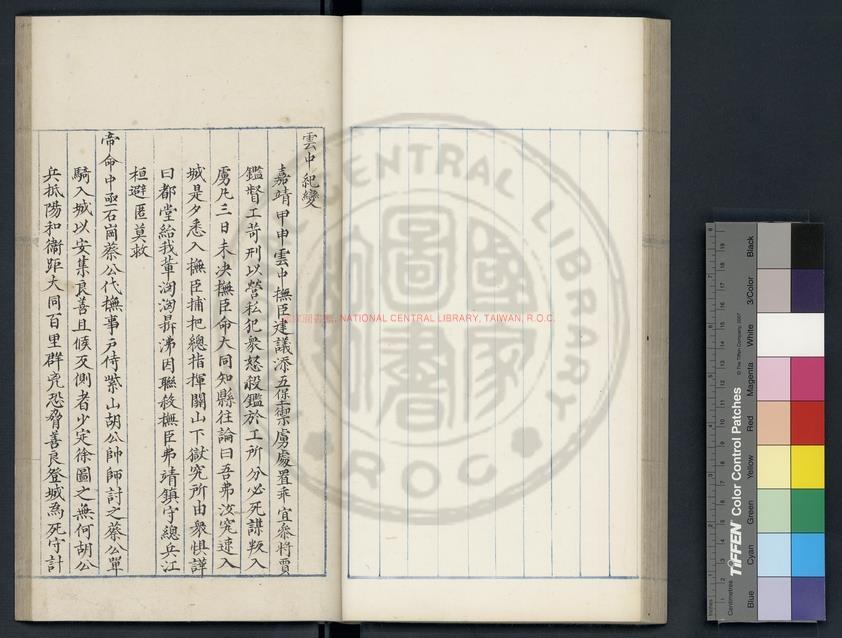 雲中紀變
嘉靖甲申雲中撫臣建議添五堡禦虜處置乖宜叅將賈
鑑督工苛刑以營私犯衆怒殺鑑於工所分必死謀叛入
虜凡三日未決撫臣命大同知縣往諭曰吾弗汝究速入
城是夕悉入撫臣捕把總指揮關山下獄究所由衆惧譁
曰都堂紿我輩洶洶鼎沸因聚殺撫臣弗靖鎮守總兵江
桓避匿莫救
帝命中丞石崗蔡公代撫事戶侍紫山胡公帥師討之蔡公單
騎入城以安集良善且候反側者少定徐圖之無何胡公
兵抵陽和衛距大同百里群兇恐脅善良登城為死守計
NATIONAL CENTRAL LIBRARY, TAIWAN, R.O.C.
CENTRAL LIBRARY
R O C
國家圖書館
TIFFEN Color Control Patches
© The Tiffen Company, 2007
Centimetres
Inches
Blue
Cyan
Green
Yellow
Red
Magenta
White
3/Color
Black